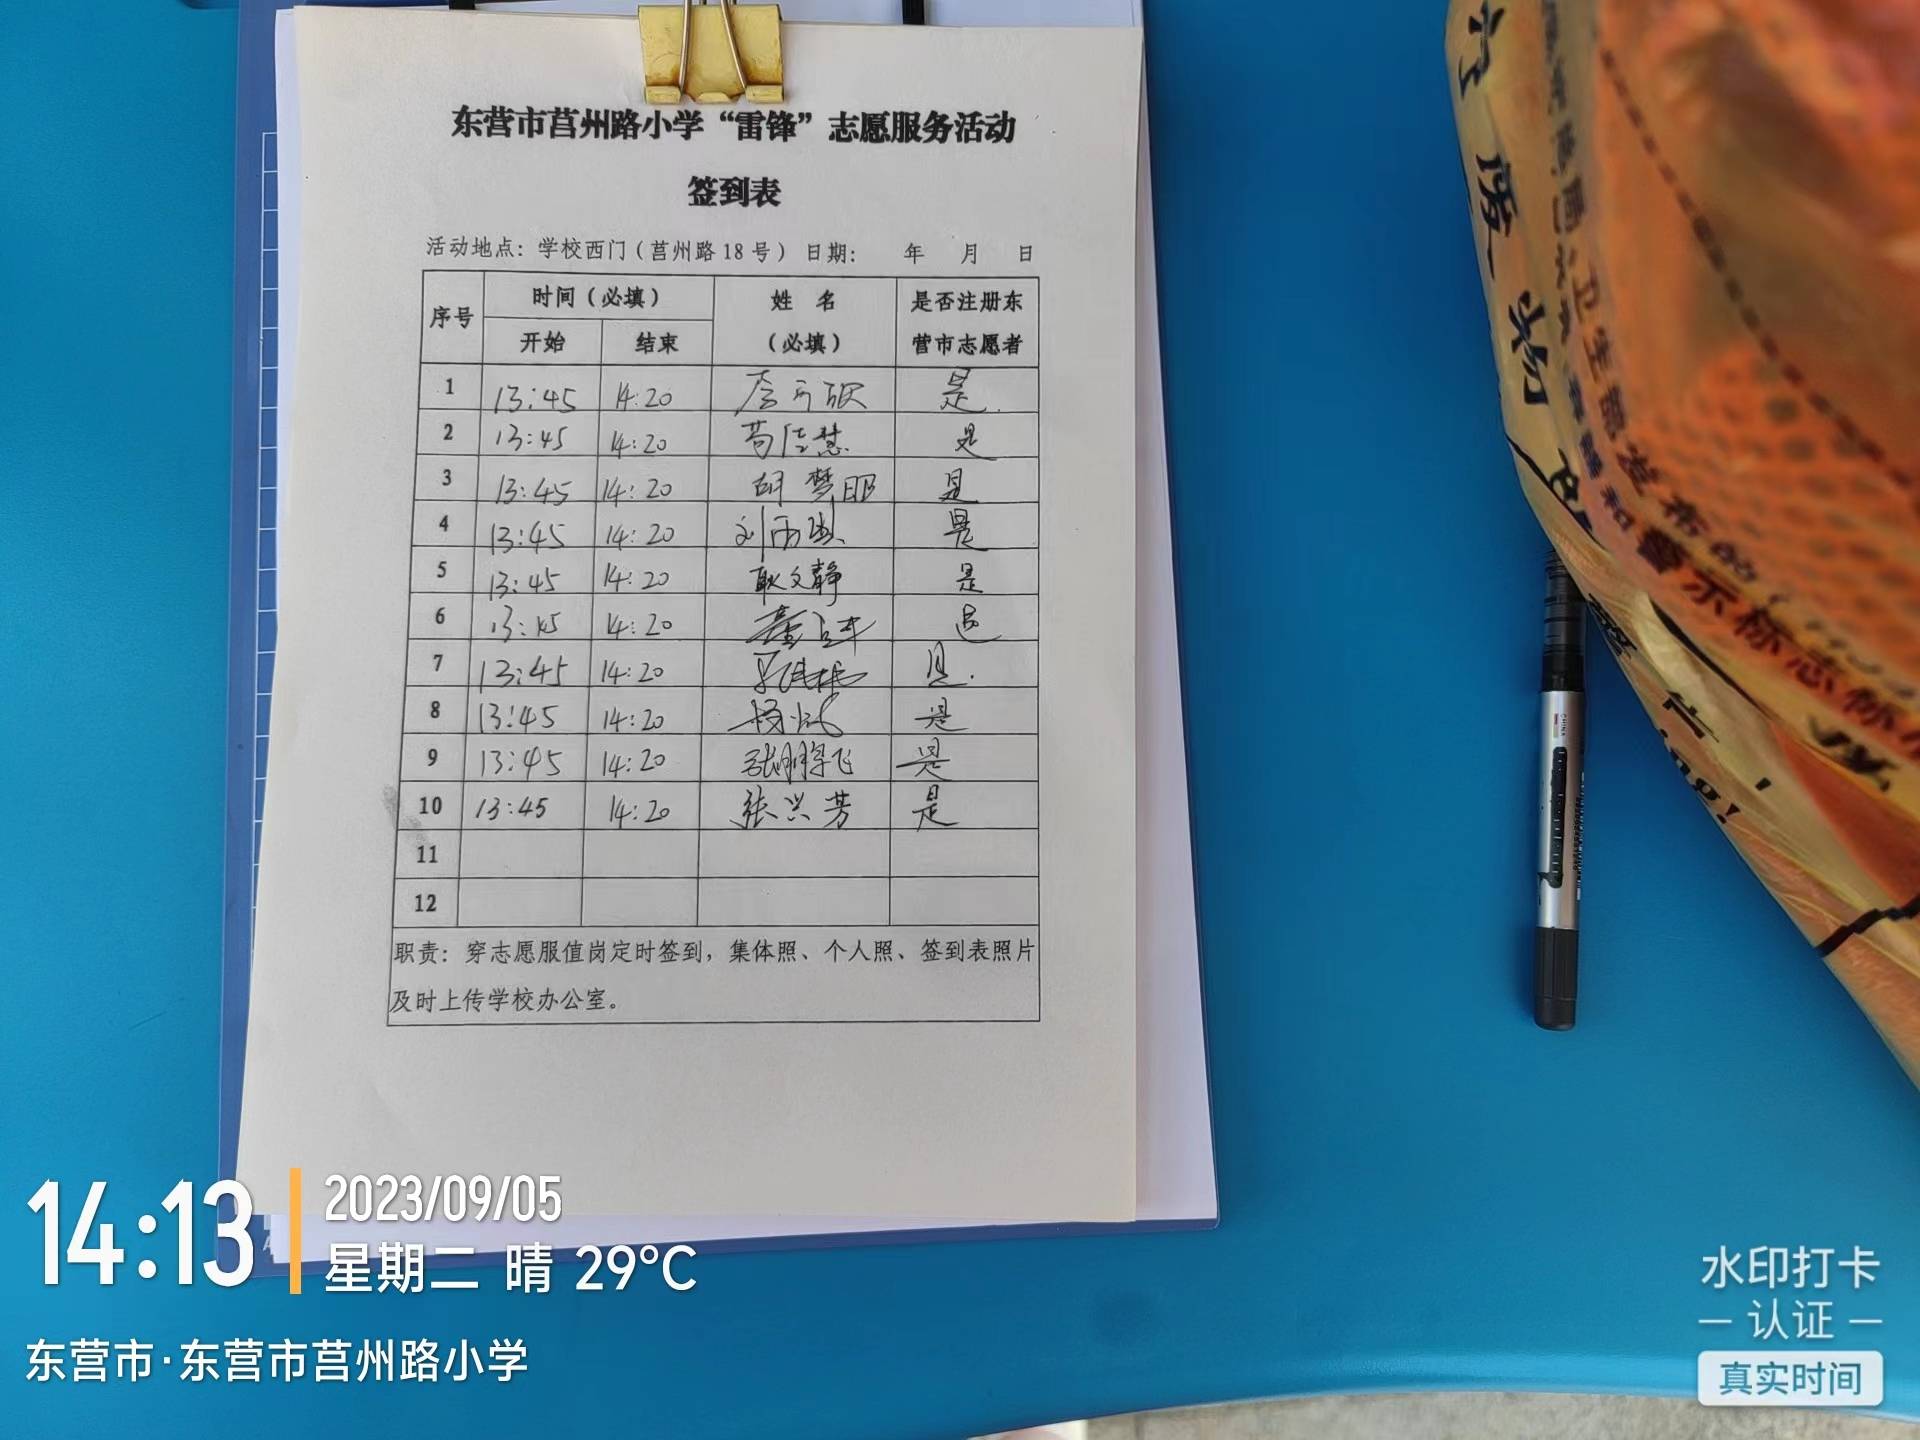 东营市莒州路小学“雷锋”志愿服务活动
签到表
活动地点：学校西门（莒州路18号） 日期： 年 月 日
序号 时间（必填） 姓 名（必填） 是否注册东营市志愿者
开始 结束
1 13:45 14:20 是
2 13:45 14:20 苟佳慧 是
3 13:45 14:20 胡梦 是
4 13:45 14:20 刘雨 是
5 13:45 14:20 耿文静 是
6 13:45 14:20 是
7 13:45 14:20 是
8 13:45 14:20 是
9 13:45 14:20 张鹏飞 是
10 13:45 14:20 张兴芳 是
11
12
职责：穿志愿服值岗定时签到，集体照、个人照、签到表照片
及时上传学校办公室。
卫生部发布的
和警示标志
14:13
2023/09/05
星期二 晴 29°C
东营市·东营市莒州路小学
水印打卡
认证
真实时间